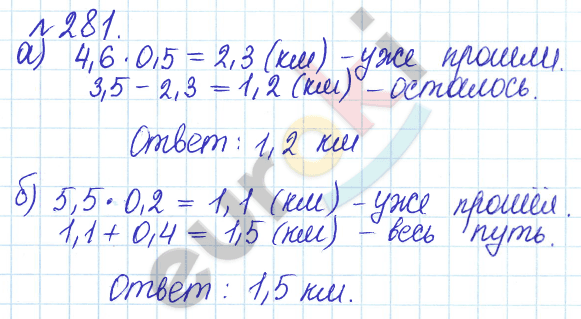 № 281.
а) 4,6 · 0,5 = 2,3 (км) – уже прошли.
3,5 – 2,3 = 1,2 (км) – осталось.
Ответ: 1,2 км
б) 5,5 · 0,2 = 1,1 (км) – уже прошёл.
1,1 + 0,4 = 1,5 (км) – весь путь.
Ответ: 1,5 км.
euroki